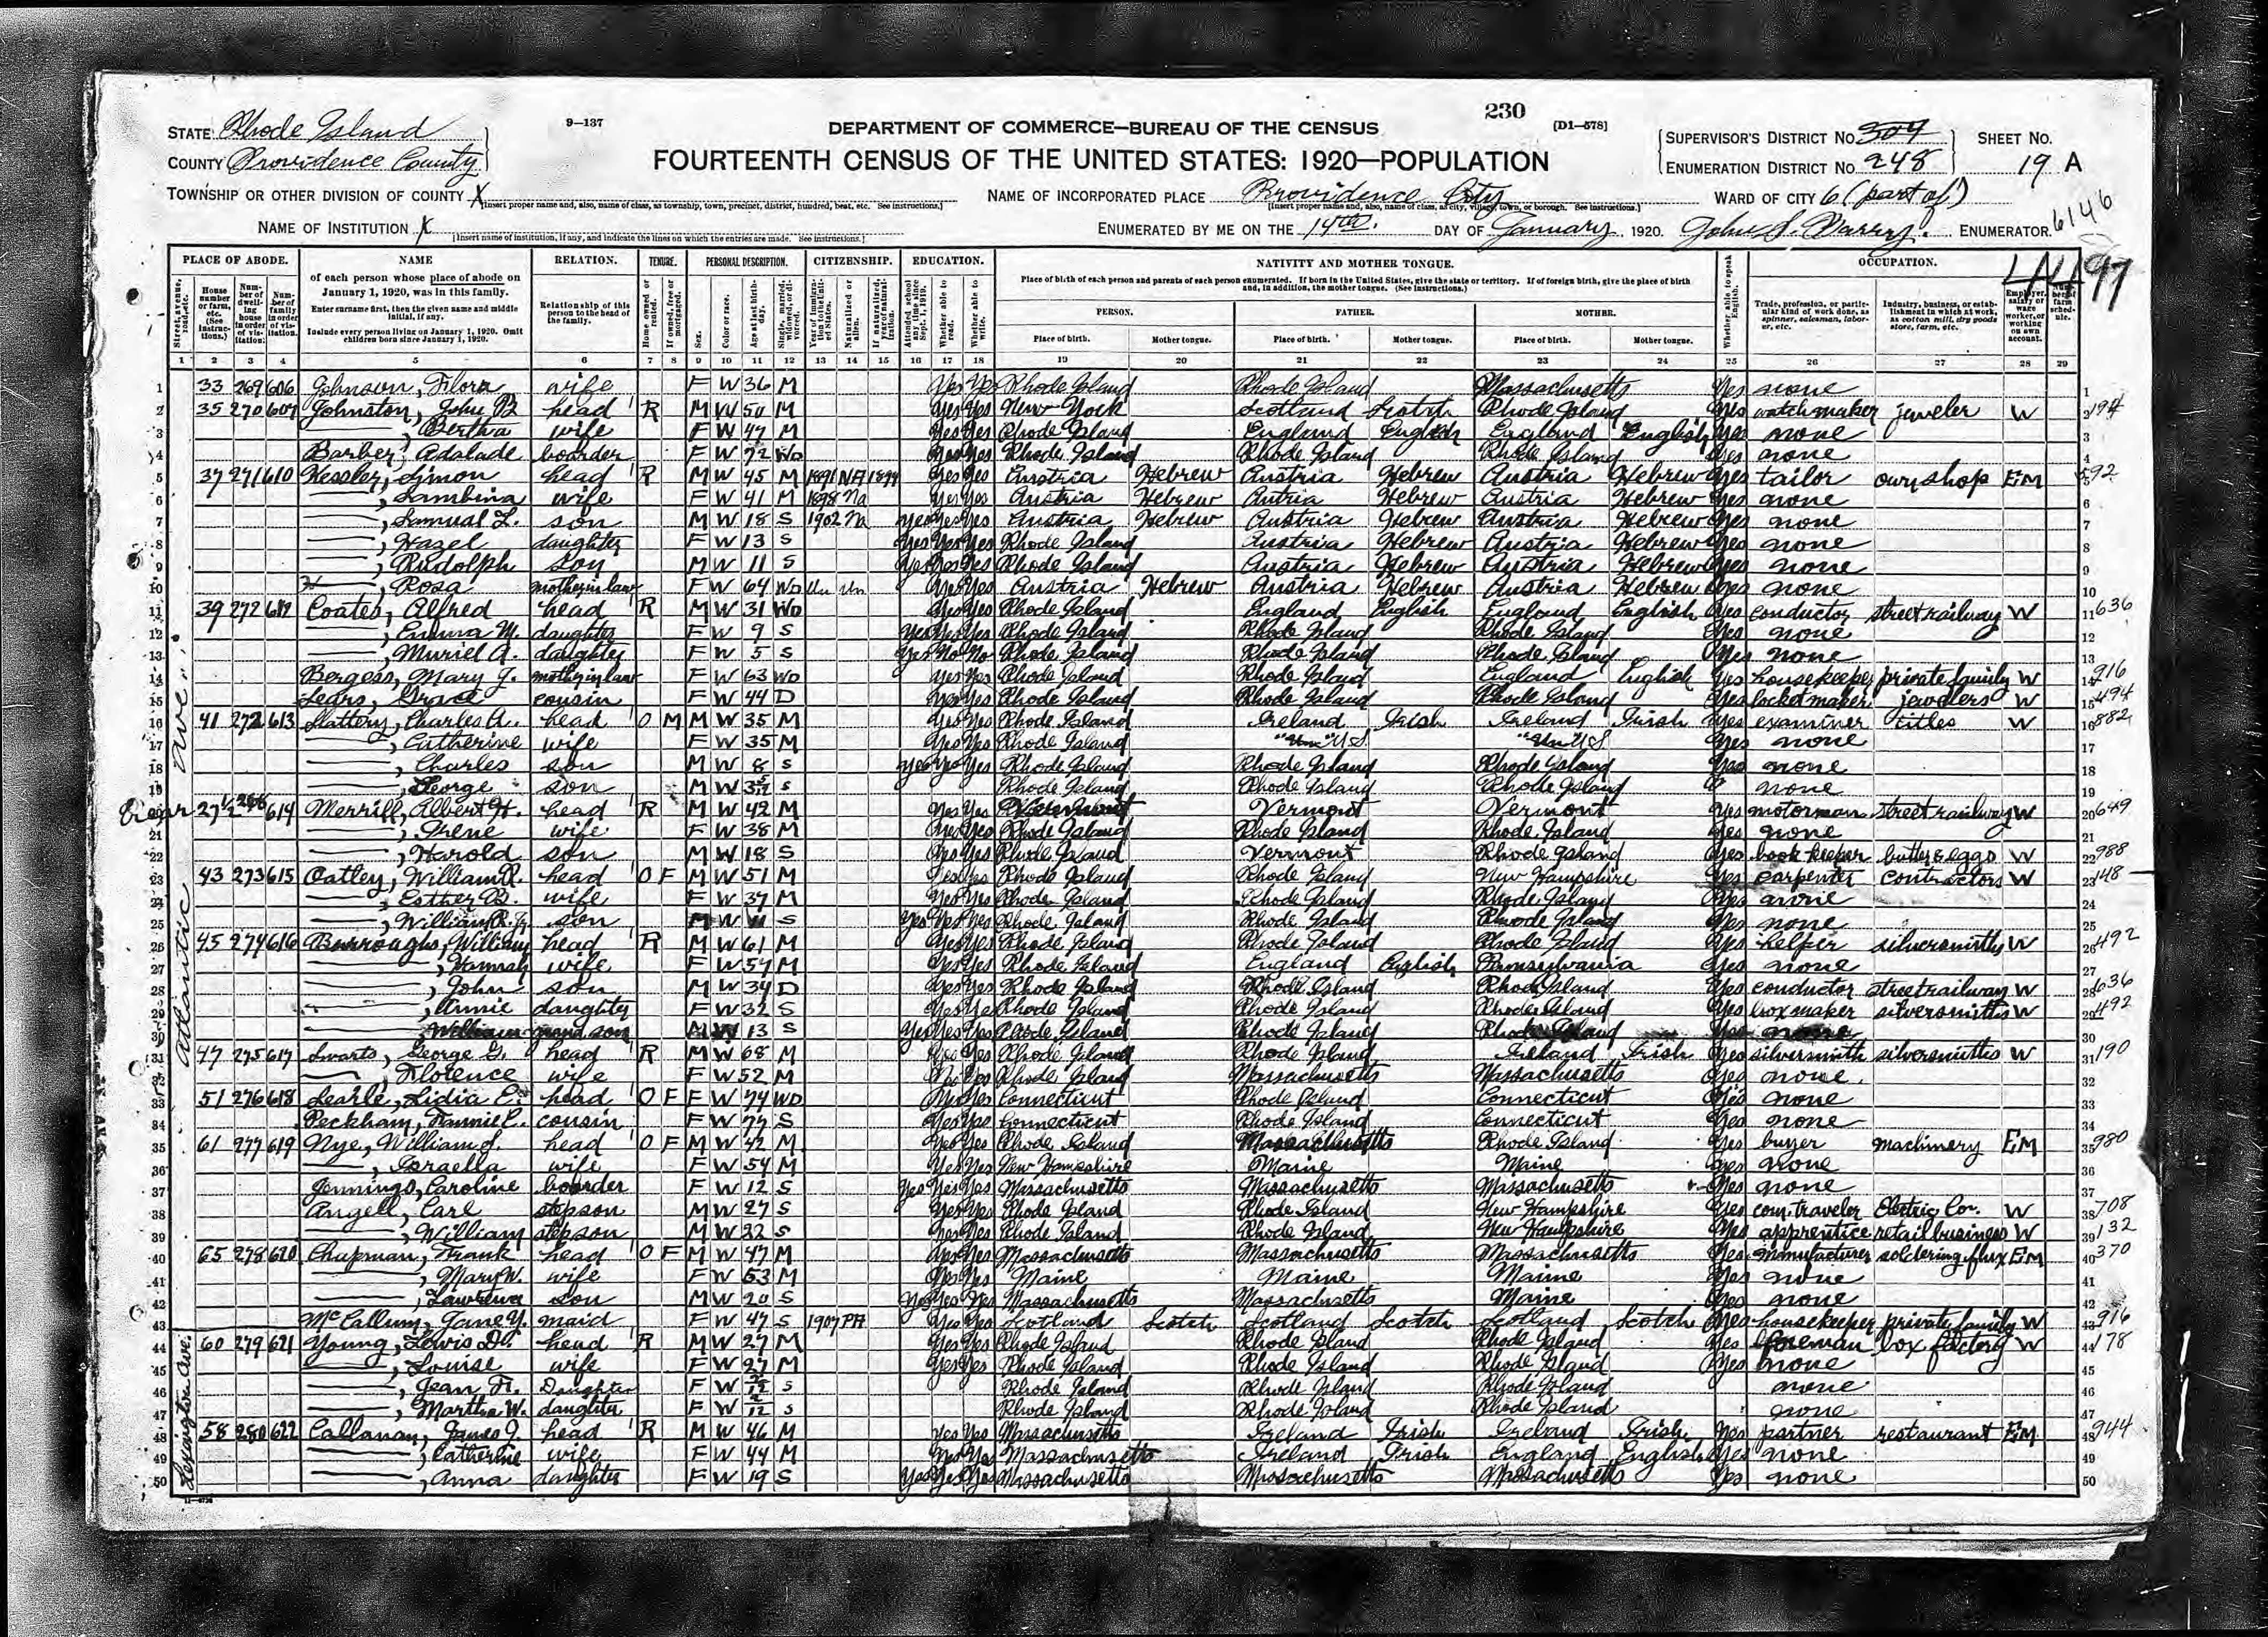 230
STATE Rhode Island
9—137
DEPARTMENT OF COMMERCE—BUREAU OF THE CENSUS
[D1—578]
SUPERVISOR'S DISTRICT No. 304
SHEET No.
COUNTY Providence County
FOURTEENTH CENSUS OF THE UNITED STATES: 1920—POPULATION
ENUMERATION DISTRICT No. 248
19 A
TOWNSHIP OR OTHER DIVISION OF COUNTY X
[Insert proper name and, also, name of class, as township, town, precinct, district, hundred, beat, etc. See instructions.]
NAME OF INCORPORATED PLACE Providence City
[Insert proper name and, also, name of class, as city, village, town, or borough. See instructions.]
WARD OF CITY 6 (part of)
6146
NAME OF INSTITUTION X
[Insert name of institution, if any, and indicate the lines on which the entries are made. See instructions.]
ENUMERATED BY ME ON THE 14th. DAY OF January, 1920. ENUMERATOR.
PLACE OF ABODE. NAME RELATION. TENURE. PERSONAL DESCRIPTION. CITIZENSHIP. EDUCATION. NATIVITY AND MOTHER TONGUE. OCCUPATION.
97
of each person whose place of abode on January 1, 1920, was in this family.
Enter surname first, then the given name and middle initial, if any.
Include every person living on January 1, 1920. Omit children born since January 1, 1920.
Relationship of this person to the head of the family.
Place of birth of each person and parents of each person enumerated. If born in the United States, give the state or territory. If of foreign birth, give the place of birth and, in addition, the mother tongue. (See instructions.)
PERSON. FATHER. MOTHER.
Place of birth. Mother tongue. Place of birth. Mother tongue. Place of birth. Mother tongue.
Trade, profession, or particular kind of work done, as spinner, salesman, laborer, etc.
Industry, business, or establishment in which at work, as cotton mill, dry goods store, farm, etc.
Employer, salary or wage worker, or working on own account.
1 2 3 4 5 6 7 8 9 10 11 12 13 14 15 16 17 18 19 20 21 22 23 24 25 26 27 28 29
1 33 269 606 Johnson, Flora wife F W 36 M Yes Yes Rhode Island Rhode Island Massachusetts Yes none 1
2 35 270 607 Johnston, John B head R M W 50 M Yes Yes New York Scotland Scotch Rhode Island Yes watchmaker jeweler W 2 194
3 ——, Bertha wife F W 47 M Yes Yes Rhode Island England English England English Yes none 3
4 Barber, Adalade boarder F W 72 Wd Yes Yes Rhode Island Rhode Island Rhode Island Yes none 4
5 37 271 610 Kessler, Simon head R M W 45 M 1891 NA 1899 Yes Yes Austria Hebrew Austria Hebrew Austria Hebrew Yes tailor own shop Em 5 592
6 ——, Sambina wife F W 41 M 1898 Na Yes Yes Austria Hebrew Autria Hebrew Austria Hebrew Yes none 6
7 ——, Samual L. son M W 18 S 1902 Na Yes Yes Yes Austria Hebrew Austria Hebrew Austria Hebrew Yes none 7
8 ——, Hazel daughter F W 13 S Yes Yes Yes Rhode Island Austria Hebrew Austria Hebrew Yes none 8
9 ——, Rudolph son M W 11 S Yes Yes Yes Rhode Island Austria Hebrew Austria Hebrew Yes none 9
10 ——, Rosa mother in law F W 64 Wd Un Un Yes Yes Austria Hebrew Austria Hebrew Austria Hebrew Yes none 10
11 39 272 612 Coates, Alfred head R M W 31 Wd Yes Yes Rhode Island England English England English Yes conductor street railway W 11 636
12 ——, Emma M. daughter F W 9 S Yes Yes Yes Rhode Island Rhode Island Rhode Island Yes none 12
13 ——, Muriel A. daughter F W 5 S Yes No No Rhode Island Rhode Island Rhode Island Yes none 13
14 Bergess, Mary J. mother in law F W 63 Wd Yes Yes Rhode Island Rhode Island England English Yes housekeeper private family W 14 916
15 Sears, Grace cousin F W 44 D Yes Yes Rhode Island Rhode Island Rhode Island Yes locket maker jewelers W 15 494
16 41 272 613 Slattery, Charles A. head O M M W 35 M Yes Yes Rhode Island Ireland Irish Ireland Irish Yes examiner titles W 16 882
17 ——, Catherine wife F W 35 M Yes Yes Rhode Island U S U S Yes none 17
18 ——, Charles son M W 8 S Yes Yes Yes Rhode Island Rhode Island Rhode Island Yes none 18
19 ——, George son M W 3 5/12 S Rhode Island Rhode Island Rhode Island none 19
20 rear 27 1/2 614 Merrill, Albert H. head R M W 42 M Yes Yes Vermont Vermont Vermont Yes motorman street railway W 20 649
21 ——, Irene wife F W 38 M Yes Yes Rhode Island Rhode Island Rhode Island Yes none 21
22 ——, Harold son M W 18 S Yes Yes Rhode Island Vermont Rhode Island Yes book keeper butter & eggs W 22 988
23 43 273 615 Oatley, William R. head O F M W 51 M Yes Yes Rhode Island Rhode Island New Hampshire Yes carpenter contractors W 23 148
24 ——, Esther B. wife F W 37 M Yes Yes Rhode Island Rhode Island Rhode Island Yes none 24
25 ——, William R. Jr son M W 11 S Yes Yes Yes Rhode Island Rhode Island Rhode Island Yes none 25
26 45 274 616 Burroughs, William head R M W 61 M Yes Yes Rhode Island Rhode Island Rhode Island Yes helper silversmiths W 26 492
27 ——, Hannah wife F W 54 M Yes Yes Rhode Island England English Pennsylvania Yes none 27
28 ——, John son M W 34 D Yes Yes Rhode Island Rhode Island Rhode Island Yes conductor street railway W 28 636
29 ——, Annie daughter F W 32 S Yes Yes Rhode Island Rhode Island Rhode Island Yes box maker silversmiths W 29 492
30 ——, William grand son M W 13 S Yes Yes Yes Rhode Island Rhode Island Rhode Island Yes none 30
31 47 275 617 Swarts, George G. head R M W 68 M Yes Yes Rhode Island Rhode Island Ireland Irish Yes silversmith silversmiths W 31 190
32 ——, Florence wife F W 52 M Yes Yes Rhode Island Massachusetts Massachusetts Yes none 32
33 51 276 618 Searle, Lidia E. head O F F W 74 WD Yes Yes Connecticut Rhode Island Connecticut Yes none 33
34 Peckham, Fannie C. cousin F W 77 S Yes Yes Connecticut Rhode Island Connecticut Yes none 34
35 61 277 619 Nye, William S. head O F M W 42 M Yes Yes Rhode Island Massachusetts Rhode Island Yes buyer machinery Em 35 980
36 ——, Israella wife F W 54 M Yes Yes New Hampshire Maine Maine Yes none 36
37 Jennings, Caroline boarder F W 12 S Yes Yes Yes Massachusetts Massachusetts Massachusetts Yes none 37
38 Angell, Earl stepson M W 27 S Yes Yes Rhode Island Rhode Island New Hampshire Yes com. traveler Electric Co. W 38 708
39 ——, William stepson M W 22 S Yes Yes Rhode Island Rhode Island New Hampshire Yes apprentice retail business W 39 132
40 65 278 620 Chapman, Frank head O F M W 47 M Yes Yes Massachusetts Massachusetts Massachusetts Yes manufacturer soldering flux Em 40 370
41 ——, Mary W. wife F W 53 M Yes Yes Maine Maine Maine Yes none 41
42 ——, son M W 20 S Yes Yes Yes Massachusetts Massachusetts Maine Yes none 42
43 McCallum, Jane Y. maid F W 47 S 1907 PA Yes Yes Scotland Scotch Scotland Scotch Scotland Scotch Yes housekeeper private family W 43 916
44 60 279 621 Young, Lewis D. head R M W 27 M Yes Yes Rhode Island Rhode Island Rhode Island Yes foreman box factory W 44 178
45 ——, Louise wife F W 27 M Yes Yes Rhode Island Rhode Island Rhode Island Yes none 45
46 ——, Jean F. Daughter F W S Rhode Island Rhode Island Rhode Island none 46
47 ——, Martha W. daughter F W S Rhode Island Rhode Island Rhode Island none 47
48 58 280 622 Callanan, James J. head R M W 46 M Yes Yes Massachusetts Ireland Irish Ireland Irish Yes partner restaurant Em 48 944
49 ——, Catherine wife F W 44 M Yes Yes Massachusetts Ireland Irish England English Yes none 49
50 ——, Anna daughter F W 19 S Yes Yes Yes Massachusetts Massachusetts Massachusetts Yes none 50
Atlantic Ave.
Lexington Ave.